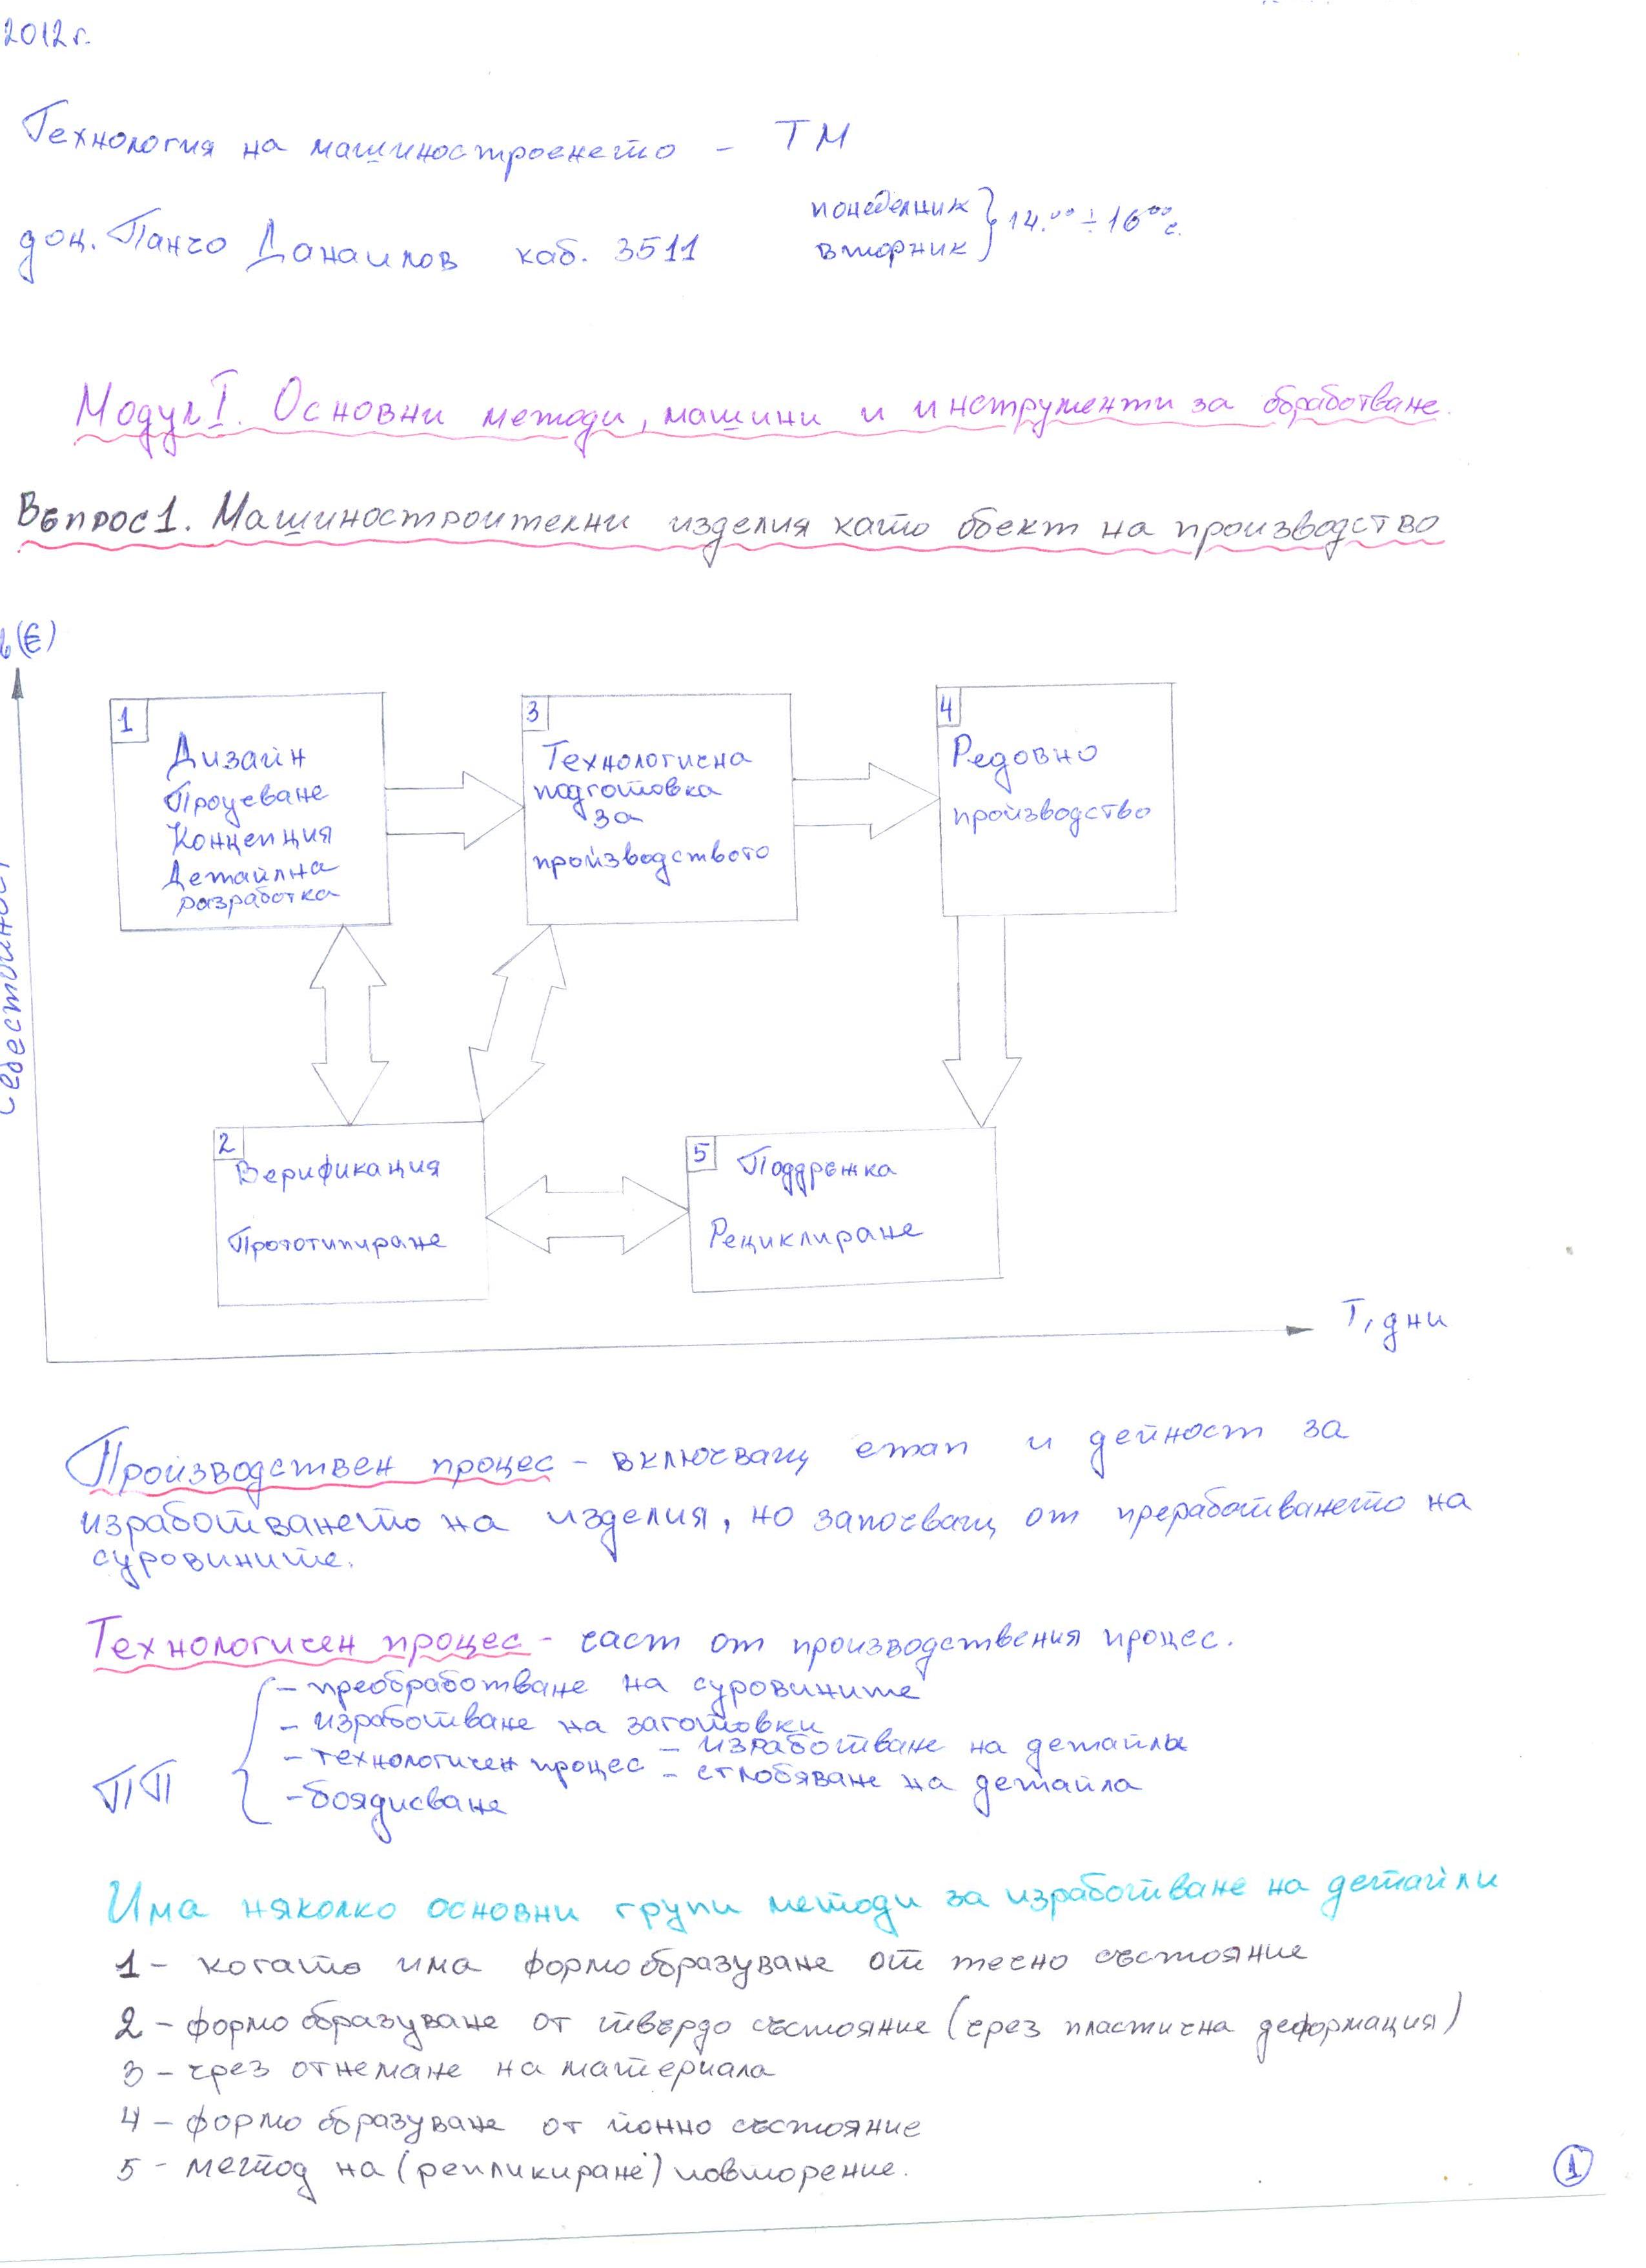 2012г.
Технология на машиностроенето - ТМ
доц. Панчо Данаилов каб. 3511
понеделник
вторник
14.00 ÷ 16 00 ч.
Модул I. Основни методи, машини и инструменти за обработване.
Въпрос 1. Машиностроителни изделия като обект на производство
(€)
1
Дизайн
Проучване
Концепция
Детайлна
разработка
3
Технологична
подготовка
за
производството
4
Редовно
производство
2
Верификация
Прототипиране
5
Поддръжка
Рециклиране
Т, дни
Производствен процес - включващ етап и дейност за
изработването на изделия, но започващ от преработването на
суровините.
Технологичен процес - част от производствения процес.
ПП
- преобработване на суровините
- изработване на заготовки
- технологичен процес - изработване на детайлы
- сглобяване на детайла
- боядисване
Има няколко основни групи методи за изработване на детайли
1 - когато има формообразуване от течно състояние
2 - формообразуване от твърдо състояние (чрез пластична деформация)
3 - чрез отнемане на материала
4 - формообразуване от йонно състояние
5 - метод на (репликиране) повторение.
1